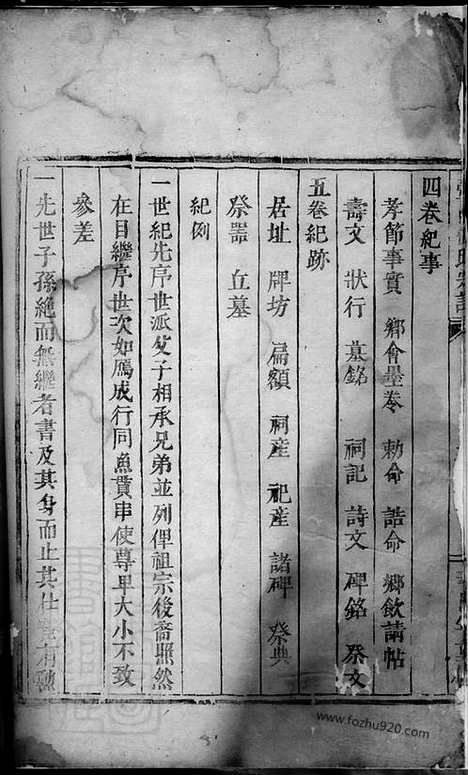 四卷紀事
孝節事實 鄉會墨卷 勅命 誥命 鄉飲請帖
壽文 狀行 墓銘 祠記 詩文 碑銘 祭文
五卷紀跡
居址 牌坊 扁額 祠産 祀産 諸碑 祭典
祭器 丘墓
紀例
一世紀先序世派父子相承兄弟並列俾祖宗後裔照然
在目繼序世次如鴈成行同魚貫串使尊卑大小不致
參差
一先世子孫絶而無繼者書及其身而止其仕
www.fozhu920.com